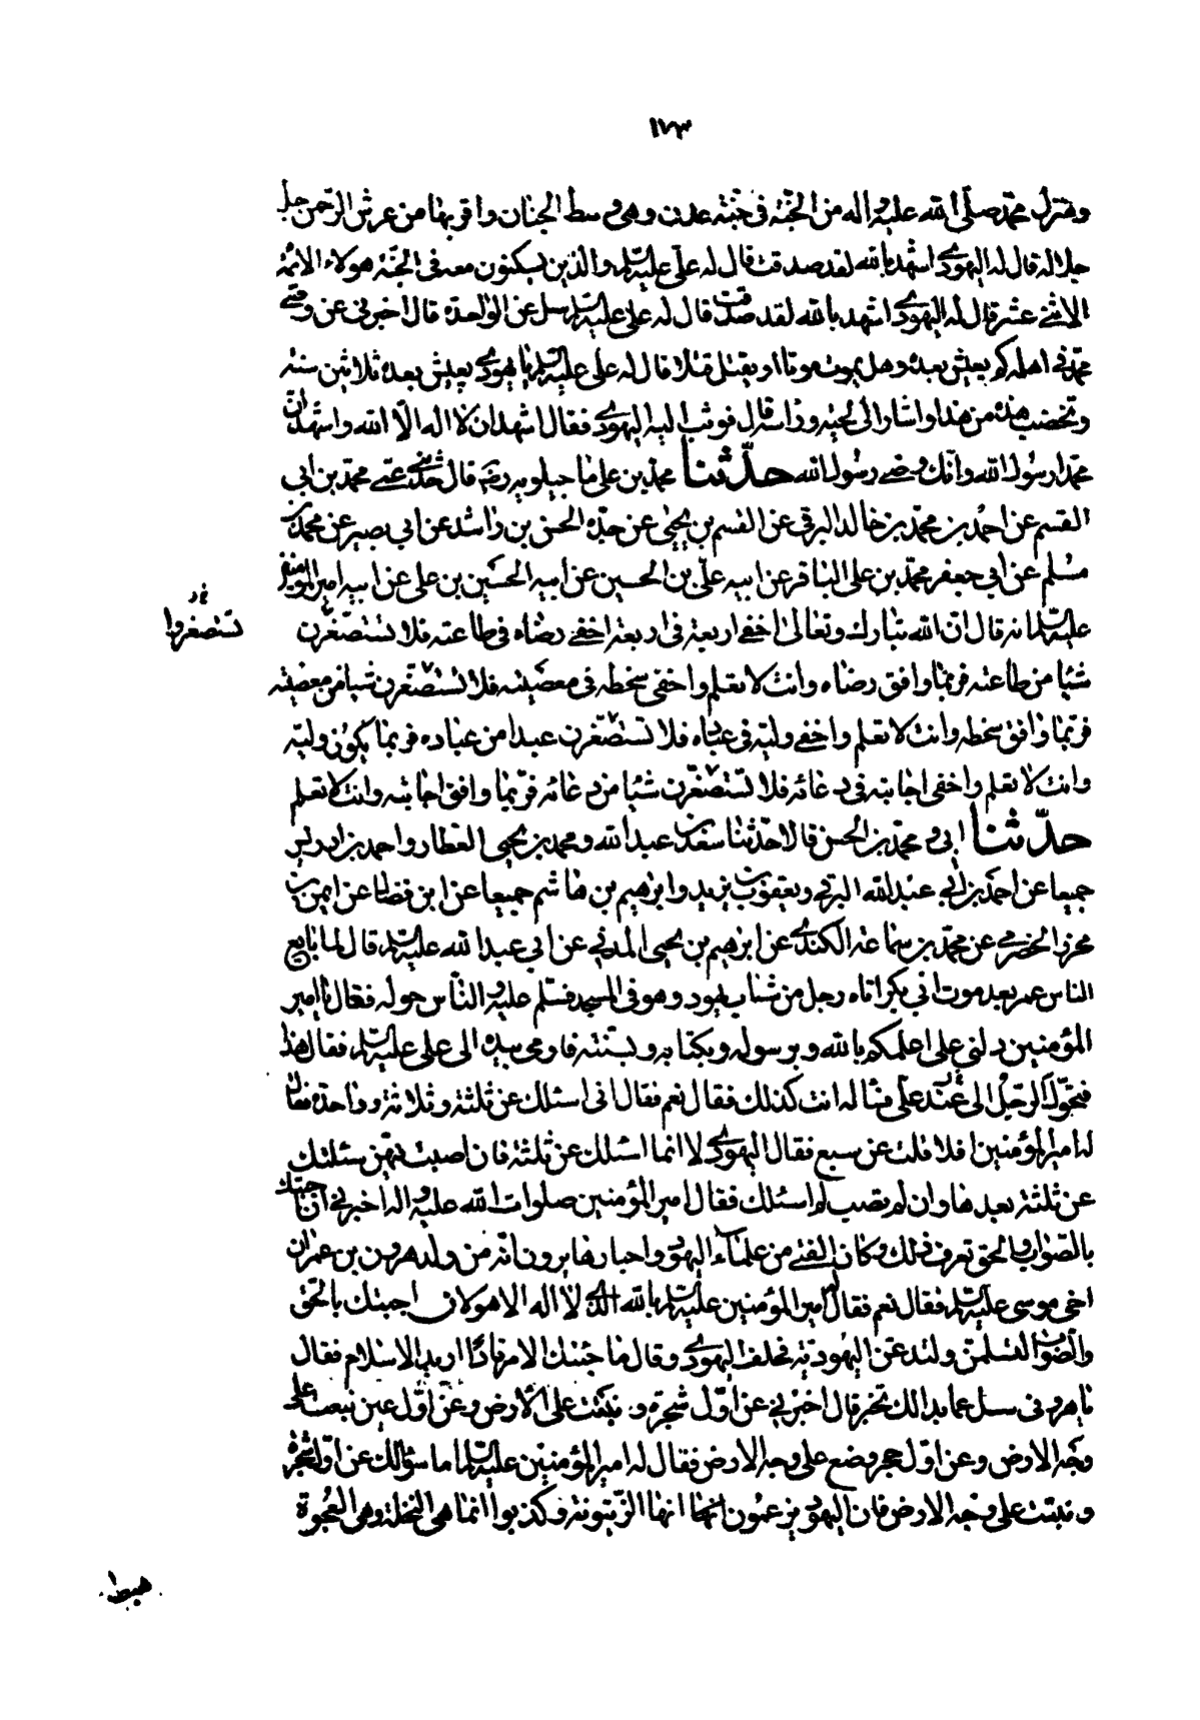 ١٧٣
ومنزل محمد صلى الله عليه واله من الجنة في جنة عدن وهي وسط الجنان واقربها من عرش الرحمن جل
جلاله قال له اليهودي اشهد بالله لقد صدقت قال له علي عليه السلم والذين يسكنون معه في الجنة هولاء الائمة
الاثنى عشر قال له اليهودي اشهد بالله لقد صدقت قال له علي عليه السلم سل عن الواحدة قال اخبرني عن وصي
محمد في اهله كم يعيش بعده وهل يموت موتا او يقتل قتلا قال له علي عليه السلم يا يهودي يعيش بعده ثلاثين سنة
وتخضب هذه من هذا واشار الى لحيته وراسه قال فوثب اليه اليهودي فقال اشهد ان لا اله الا الله واشهد ان
محمدا رسول الله وانك وصي رسول الله حدثنا محمد بن علي ماجيلويه رضه قال حدثني عمي محمد بن ابي
القسم عن احمد بن محمد بن خالد البرقي عن القسم بن يحيى عن جده الحسن بن راشد عن ابي بصير عن محمد بن
مسلم عن ابي جعفر محمد بن علي الباقر عن ابيه علي بن الحسين عن ابيه الحسين بن علي عن ابيه امير المؤمنين
عليه السلم انه قال ان الله تبارك وتعالى اخفى اربعة في اربعة اخفى رضاه في طاعته فلا تستصغرن
تستصغروا
شيئا من طاعته فربما وافق رضاه وانت لا تعلم واخفى سخطه في معصيته فلا تستصغرن شيئا من معصيته
فربما وافق سخطه وانت لا تعلم واخفى وليه في عباده فلا تستصغرن عبدا من عباده فربما يكون وليه
وانت لا تعلم واخفى اجابته في دعائه فلا تستصغرن شيئا من دعائه فربما وافق اجابته وانت لا تعلم
حدثنا ابي و محمد بن الحسن قالا حدثنا سعد بن عبد الله و محمد بن يحيى العطار واحمد بن ادريس
جميعا عن احمد بن ابي عبد الله البرقي ويعقوب بن يزيد وابرهيم بن هاشم جميعا عن ابن فضال عن ايمن بن
محرز الحضرمي عن محمد بن سماعة الكندي عن ابرهيم بن يحيى المدني عن ابي عبد الله عليه السلم قال لما بايع
الناس عمر بعد موت ابي بكر اتاه رجل من شباب اليهود وهو في المسجد فسلم عليه والناس حوله فقال يا امير
المؤمنين دلني على اعلمكم بالله وبرسوله وبكتابه وبسنته فاومى بيده الى علي عليه السلم فقال هذا
فتحول الرجل الى عند علي فسأله انت كذلك فقال نعم فقال اني اسئلك عن ثلثة وثلاثة وواحدة فقال
له امير المؤمنين افلا قلت عن سبع فقال اليهودي لا انما اسئلك عن ثلثة فان اصبت فيهن سئلتك
عن ثلثة بعدها وان لم تصب لم اسئلك فقال امير المؤمنين صلوات الله عليه واله اخبرني ان اجبتك
بالصواب والحق تعرف ذلك وكان الفتى من علماء اليهود واحبارها يرون انه من ولد هرون بن عمران
اخي موسى عليه السلم فقال نعم فقال امير المؤمنين عليه السلم بالله الذي لا اله الا هو لان اجبتك بالحق
والصواب لتسلمن ولتدعن اليهودية فحلف اليهودي وقال ما جئتك الا مرتادا اريد الاسلام فقال
يا هروني سل عما بدالك تخبر قال اخبرني عن اول شجرة نبتت على الارض وعن اول عين نبعت على
وجه الارض وعن اول حجر وضع على وجه الارض فقال له امير المؤمنين عليه السلم اما سؤالك عن اول شجرة
نبتت على وجه الارض فان اليهود يزعمون انها الزيتونة وكذبوا انما هي النخلة وهي العجوة
هبط